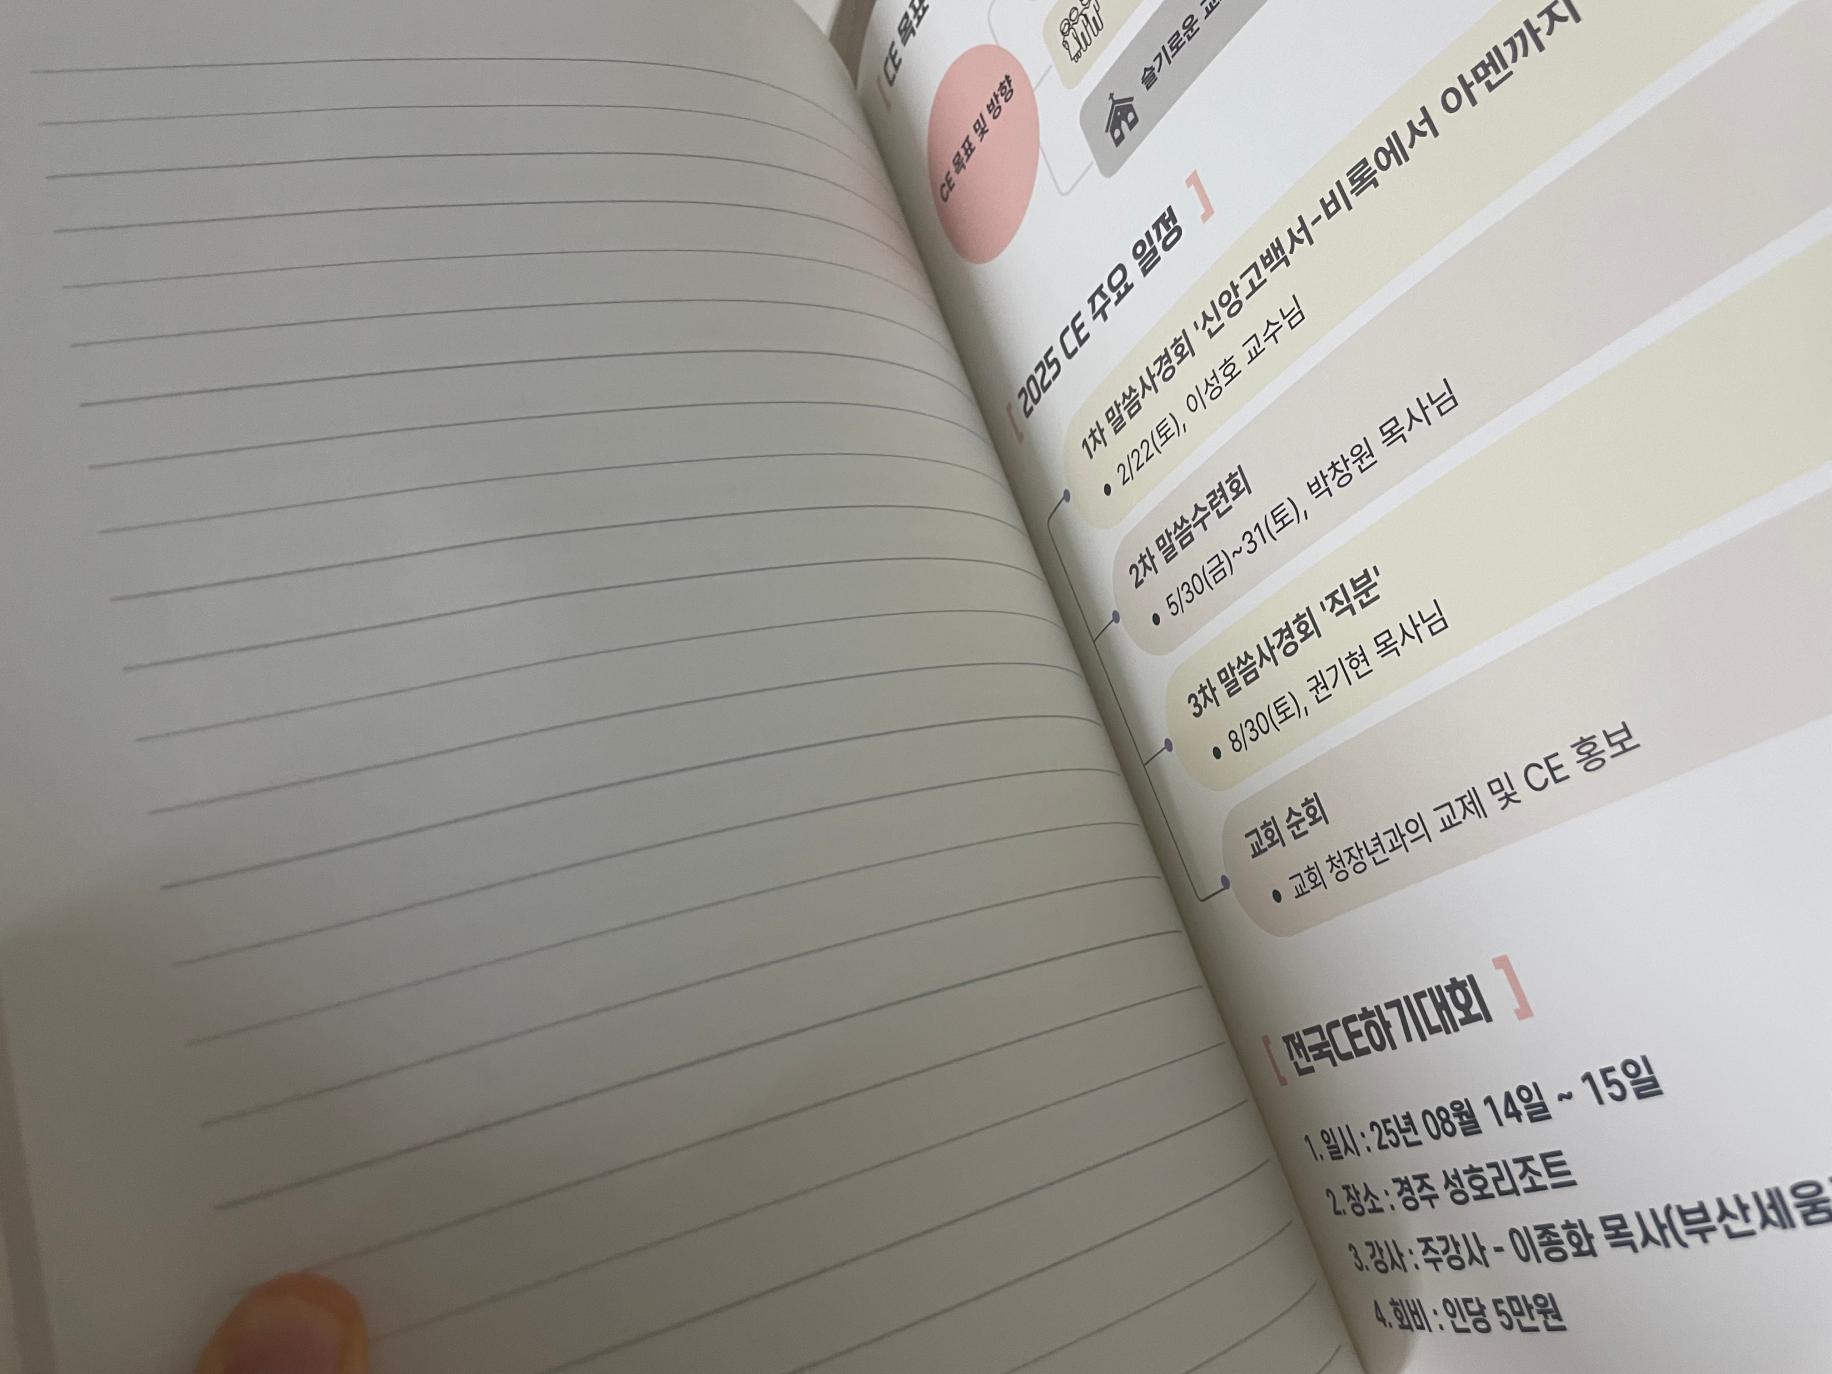 [ CE 목표
CE 목표 및 방향
슬기로운
[ 2025 CE 주요 일정 ]
1차 말씀사경회 '신앙고백서-비록에서 아멘까지
• 2/22(토), 이성호 교수님
2차 말씀수련회
• 5/30(금)~31(토), 박창원 목사님
3차 말씀사경회 '직분'
• 8/30(토), 권기현 목사님
교회 순회
• 교회 청장년과의 교제 및 CE 홍보
[ 전국CE하기대회 ]
1. 일시 : 25년 08월 14일 ~ 15일
2. 장소 : 경주 성호리조트
3. 강사 : 주강사 - 이종화 목사(부산세움
4. 회비 : 인당 5만원